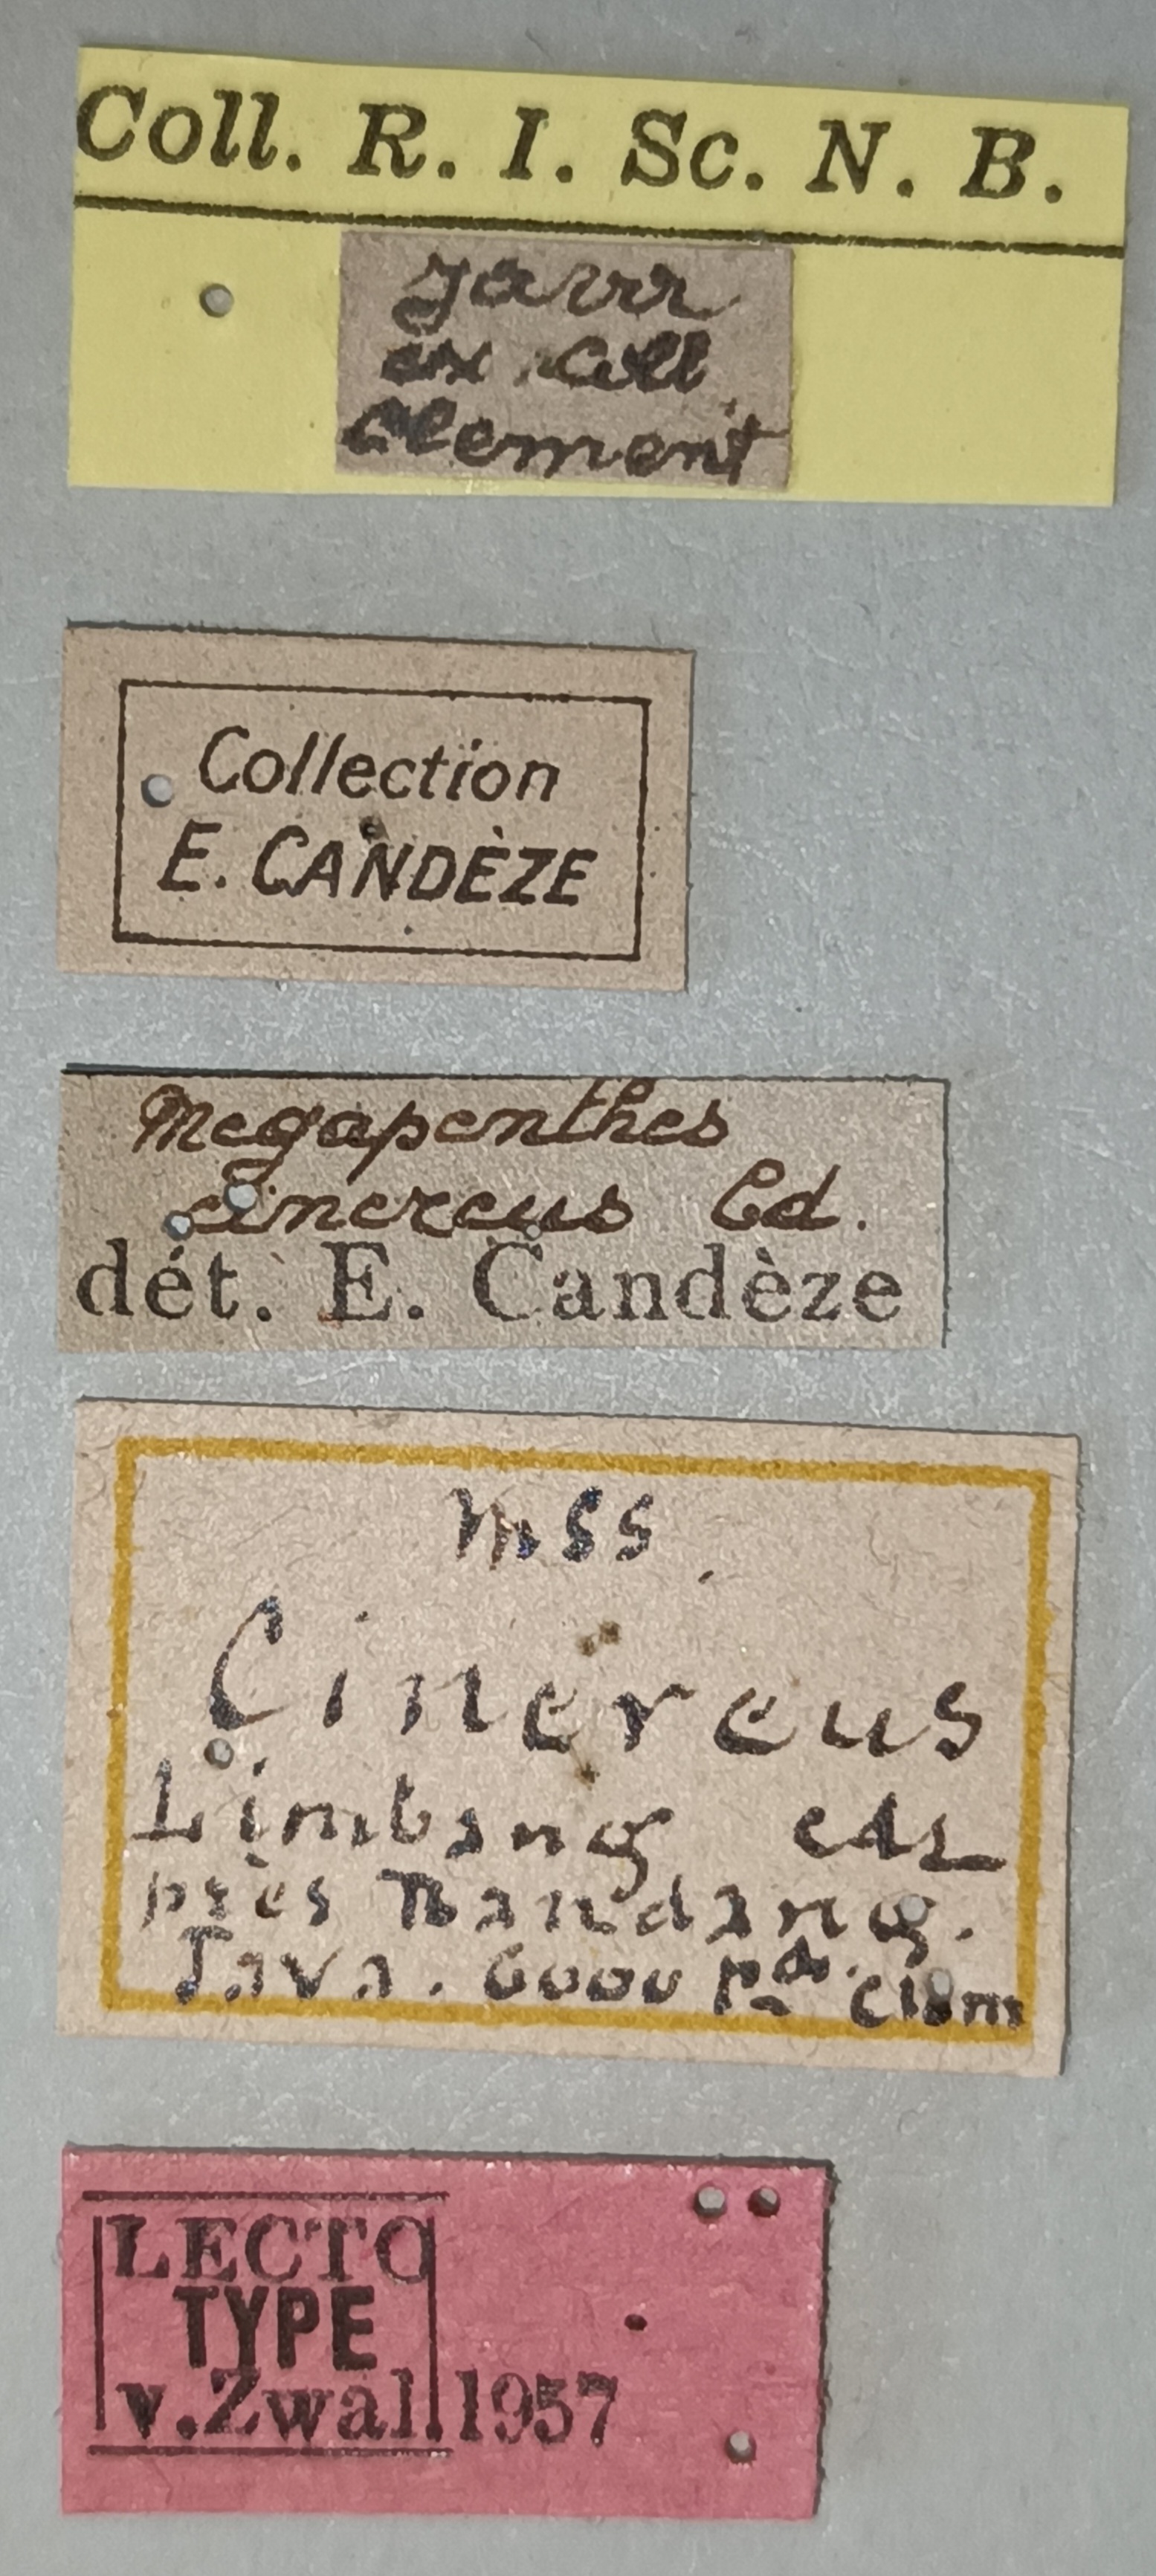 Coll. R. I. Sc. N. B.
Java
ex Coll
Clement
Collection
E. CANDÈZE
Megapenthes
cinereus Cd.
dét. E. Candèze
mss.
Cinereus
Limbang cdz
près Bandang.
Java. 6000 pds. Clem
LECTO
TYPE
v.Zwal. 1957